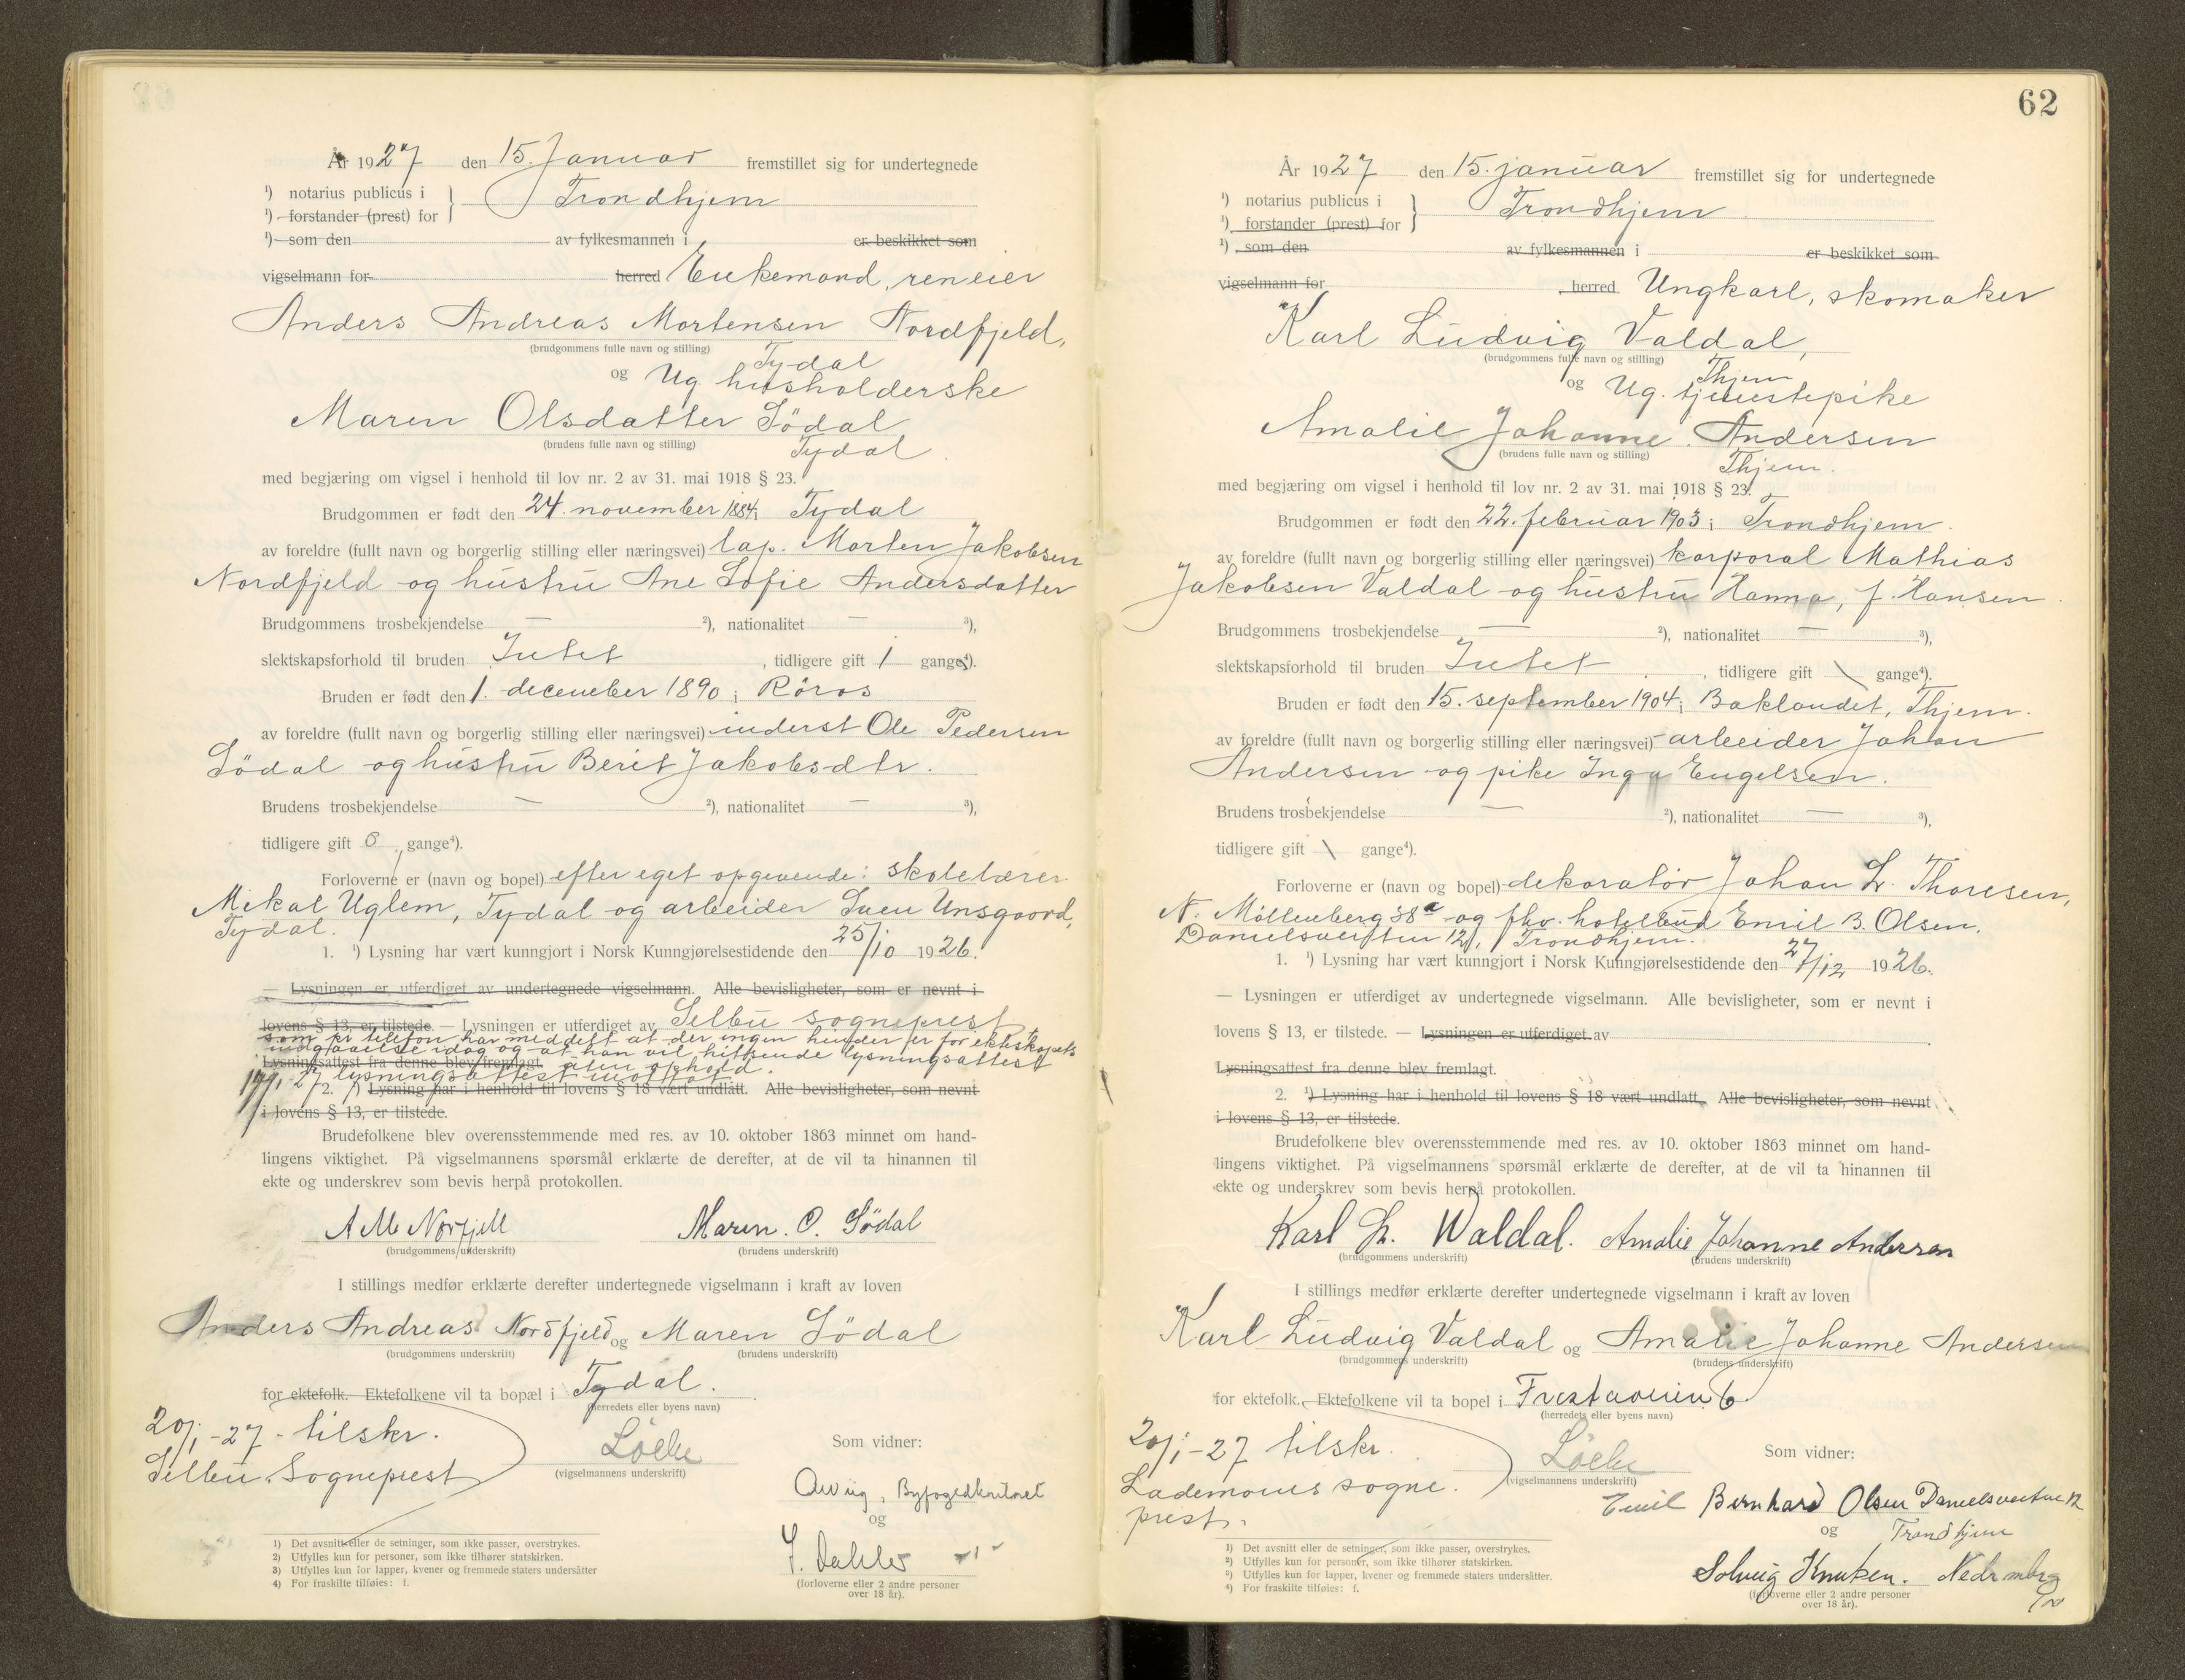 År 1927 den 15. Januar fremstillet sig for undertegnede
¹) notarius publicus i
¹) forstander (prest) for
Trondhjem
¹) som den av fylkesmannen i er beskikket som
vigselmann for herred Enkemand, reneier
Anders Andreas Mortensen Nordfjeld,
(brudgommens fulle navn og stilling)
Tydal
og Ug. husholderske
Maren Olsdatter Södal
(brudens fulle navn og stilling)
Tydal
med begjæring om vigsel i henhold til lov nr. 2 av 31. mai 1918 § 23.
Brudgommen er født den 24. november 1884 i Tydal
av foreldre (fullt navn og borgerlig stilling eller næringsvei) lap. Morten Jakobsen
Nordfjeld og hustru Ane Sofie Andersdatter
Brudgommens trosbekjendelse — ²), nationalitet — ³),
slektskapsforhold til bruden Intet, tidligere gift 1 gange⁴).
Bruden er født den 1. december 1890 i Röros
av foreldre (fullt navn og borgerlig stilling eller næringsvei) inderst Ole Pedersen
Södal og hustru Berit Jakobsdtr.
Brudens trosbekjendelse — ²), nationalitet — ³),
tidligere gift 0 gange⁴).
Forloverne er (navn og bopel) efter eget opgivende: skolelærer
Mikal Uglem, Tydal og arbeider Sven Unsgaard,
Tydal.
1. ¹) Lysning har vært kunngjort i Norsk Kunngjørelsestidende den 25/10 1926.
— Lysningen er utferdiget av undertegnede vigselmann. Alle bevisligheter, som er nevnt i
lovens § 13, er tilstede. — Lysningen er utferdiget av Selbu sogneprest
som pr telefon har meddelt at der ingen hinder er for ekteskapets
indgaaelse idag og at han vil hitsende lysningsattest
Lysningsattest fra denne blev fremlagt. uten ophold.
17/1-27 lysningsattest mottat
2. ¹) Lysning har i henhold til lovens § 18 vært undlatt. Alle bevisligheter, som nevnt
i lovens § 13, er tilstede.
Brudefolkene blev overensstemmende med res. av 10. oktober 1863 minnet om hand-
lingens viktighet. På vigselmannens spørsmål erklærte de derefter, at de vil ta hinannen til
ekte og underskrev som bevis herpå protokollen.
A M Norfjell Maren. O. Södal
(brudgommens underskrift) (brudens underskrift)
I stillings medfør erklærte derefter undertegnede vigselmann i kraft av loven
Anders Andreas Nordfjeld og Maren Södal
(brudgommens underskrift) (brudens underskrift)
for ektefolk. Ektefolkene vil ta bopæl i Tydal.
(herredets eller byens navn)
20/1-27 - tilskr.
Selbu Sogneprest
(vigselmannens underskrift)
Som vidner:
Byfogedkontoret
og
(forloverne eller 2 andre personer
over 18 år).
1) Det avsnitt eller de setninger, som ikke passer, overstrykes.
2) Utfylles kun for personer, som ikke tilhører statskirken.
3) Utfylles kun for lapper, kvener og fremmede staters undersåtter
4) For fraskilte tilføies: f.
62
År 1927 den 15. januar fremstillet sig for undertegnede
¹) notarius publicus i
¹) forstander (prest) for
Trondhjem
¹) som den av fylkesmannen i er beskikket som
vigselmann for herred Ungkarl, skomaker
Karl Ludvig Valdal,
(brudgommens fulle navn og stilling)
Thjem
og Ug. tjenestepike
Amalie Johanne Andersen
(brudens fulle navn og stilling)
Thjem.
med begjæring om vigsel i henhold til lov nr. 2 av 31. mai 1918 § 23.
Brudgommen er født den 22. februar 1903 i Trondhjem.
av foreldre (fullt navn og borgerlig stilling eller næringsvei) korporal Mathias
Jakobsen Valdal og hustru Hanna, f. Hansen.
Brudgommens trosbekjendelse — ²), nationalitet — ³),
slektskapsforhold til bruden Intet, tidligere gift \ gange⁴).
Bruden er født den 15. september 1904 i Baklandet, Thjem.
av foreldre (fullt navn og borgerlig stilling eller næringsvei) arbeider Johan
Andersen og pike Inga Engelsen.
Brudens trosbekjendelse — ²), nationalitet — ³),
tidligere gift \ gange⁴).
Forloverne er (navn og bopel) dekoratør Johan L. Thoresen,
N. Möllenberg 38a og fhv. hotelbud Emil B. Olsen,
Danielsveiten 12, Trondhjem.
1. ¹) Lysning har vært kunngjort i Norsk Kunngjørelsestidende den 27/12 1926.
— Lysningen er utferdiget av undertegnede vigselmann. Alle bevisligheter, som er nevnt i
lovens § 13, er tilstede. — Lysningen er utferdiget av
Lysningsattest fra denne blev fremlagt.
2. ¹) Lysning har i henhold til lovens § 18 vært undlatt. Alle bevisligheter, som nevnt
i lovens § 13, er tilstede.
Brudefolkene blev overensstemmende med res. av 10. oktober 1863 minnet om hand-
lingens viktighet. På vigselmannens spørsmål erklærte de derefter, at de vil ta hinannen til
ekte og underskrev som bevis herpå protokollen.
Karl L. Waldal. Amalie Johanne Andersen
(brudgommens underskrift) (brudens underskrift)
I stillings medfør erklærte derefter undertegnede vigselmann i kraft av loven
Karl Ludvig Valdal og Amalie Johanne Andersen
(brudgommens underskrift) (brudens underskrift)
for ektefolk. Ektefolkene vil ta bopel i
(herredets eller byens navn)
20/1-27 tilskr.
Lademoens sogne-
prest.
(vigselmannens underskrift)
Som vidner:
Emil Bernhard Olsen Danielsveiten 12
og Trondhjem
Solveig Knutsen.
(forloverne eller 2 andre personer
over 18 år).
1) Det avsnitt eller de setninger, som ikke passer, overstrykes.
²) Utfylles kun for personer, som ikke tilhører statskirken.
³) Utfylles kun for lapper, kvener og fremmede staters undersåtter.
⁴) For fraskilte tilføies: f.